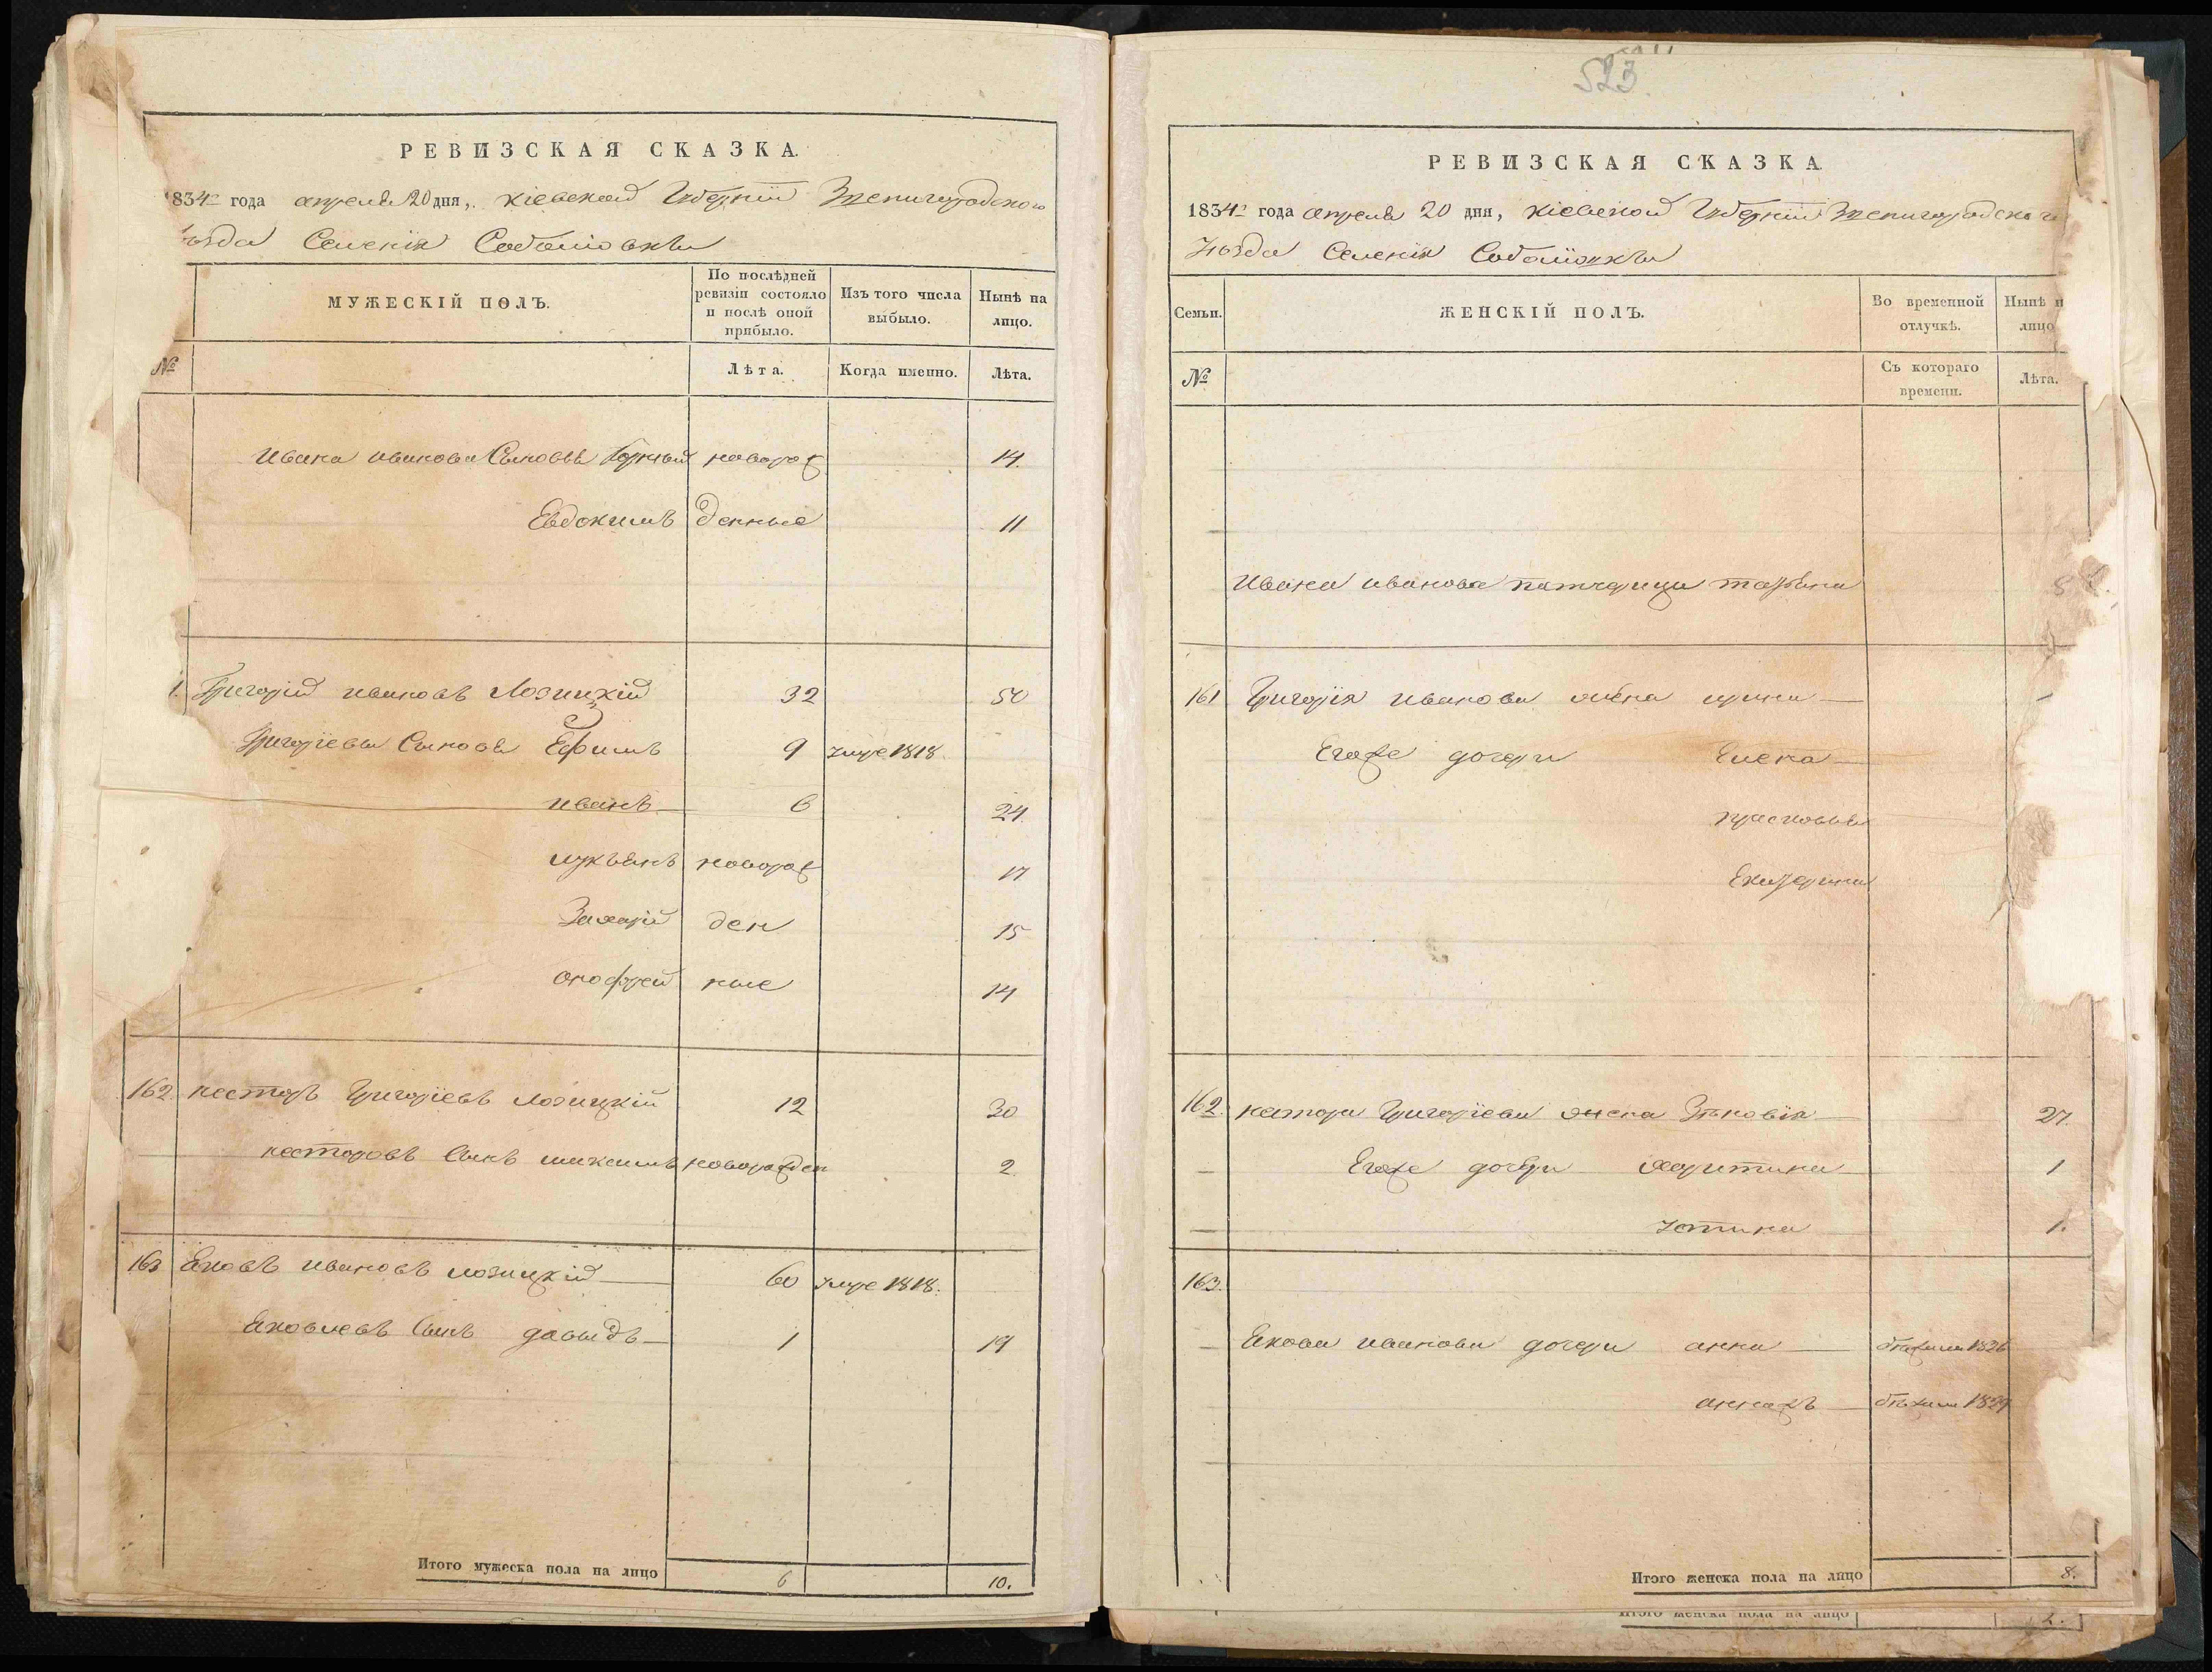 РЕВИЗСКАЯ СКАЗКА.
1834го года апреля 20 дня, Кіевской Губерніи Звенигородскаго
уѣзда Селенія Соболіовки
МУЖЕСКІЙ ПОЛЪ.
По послѣдней ревизіи состояло и послѣ оной прибыло.
Изъ того числа выбыло.
Нынѣ на лицо.
№ Лѣта. Когда именно. Лѣта.
Ивана Иванова Сыновья новорож 14.
Евдокимъ денные 11
1. Григорій Ивановъ Лозицкій 32 50
Григоріевы Сыновья Ефимъ 9 умре 1818.
Иванъ 6 24.
Лукьянъ новорож 17
Захарій ден 15
Онофрей ные 14
162. Несторъ Григоріевъ Лозицкій 12 30
Несторовъ Сынъ Максимъ новорожден 2.
163 Яковъ Ивановъ Лозицкій 60 умре 1818.
Яковлевъ Сынъ Давыдъ 1 19
Итого мужеска пола на лицо 6 10.
523
РЕВИЗСКАЯ СКАЗКА
1834го года апреля 20 дня, Кіевской Губерніи Звенигородскаго
Уѣзда Селенія Соболіовки
Семьи.
ЖЕНСКІЙ ПОЛЪ.
Во временной отлучкѣ.
Нынѣ н лицо
№ Съ котораго времени. Лѣта.
Ивана Иванова патчерица Татьяна
161 Григорія Иванова жена Ирина
Егоже дочери Елена
Прасковья
Екатерина
162. Нестора Григоріева жена Зѣновія 27.
Егоже дочери Харитина 1
Устина 1.
163.
Якова Иванова дочери Анна 1826
1829
Итого женска пола на лицо 8.
Итого женска пола на лицо 2.